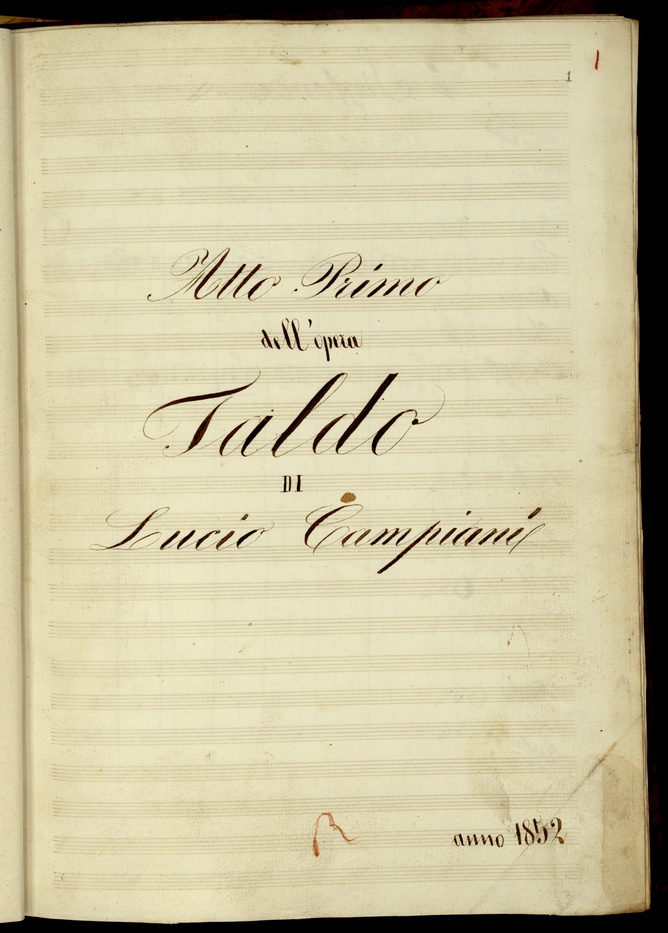 1
1
Atto Primo
dell'opera
Taldo
DI
Lucio Campiani
anno 1852